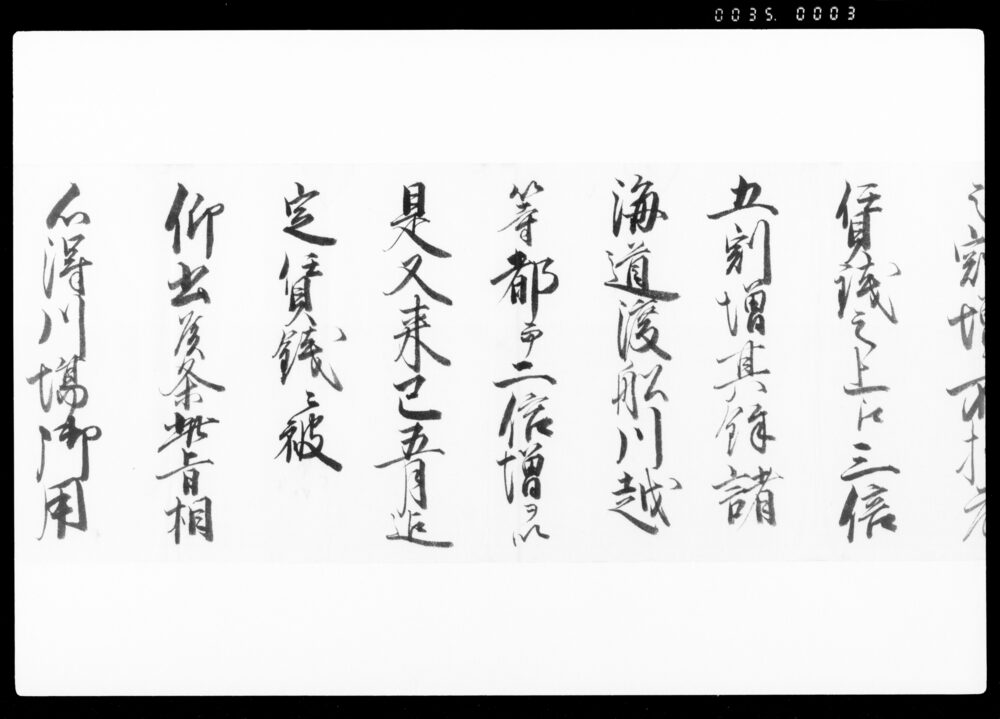 0035. 0003
之割増可有
賃銭之上江三倍
五割増其餘諸
海道渡船川越
等都而二倍増ヲ以
是又来巳五月迄
定賃銭ニ被
仰出候条此旨相
心得川場御用